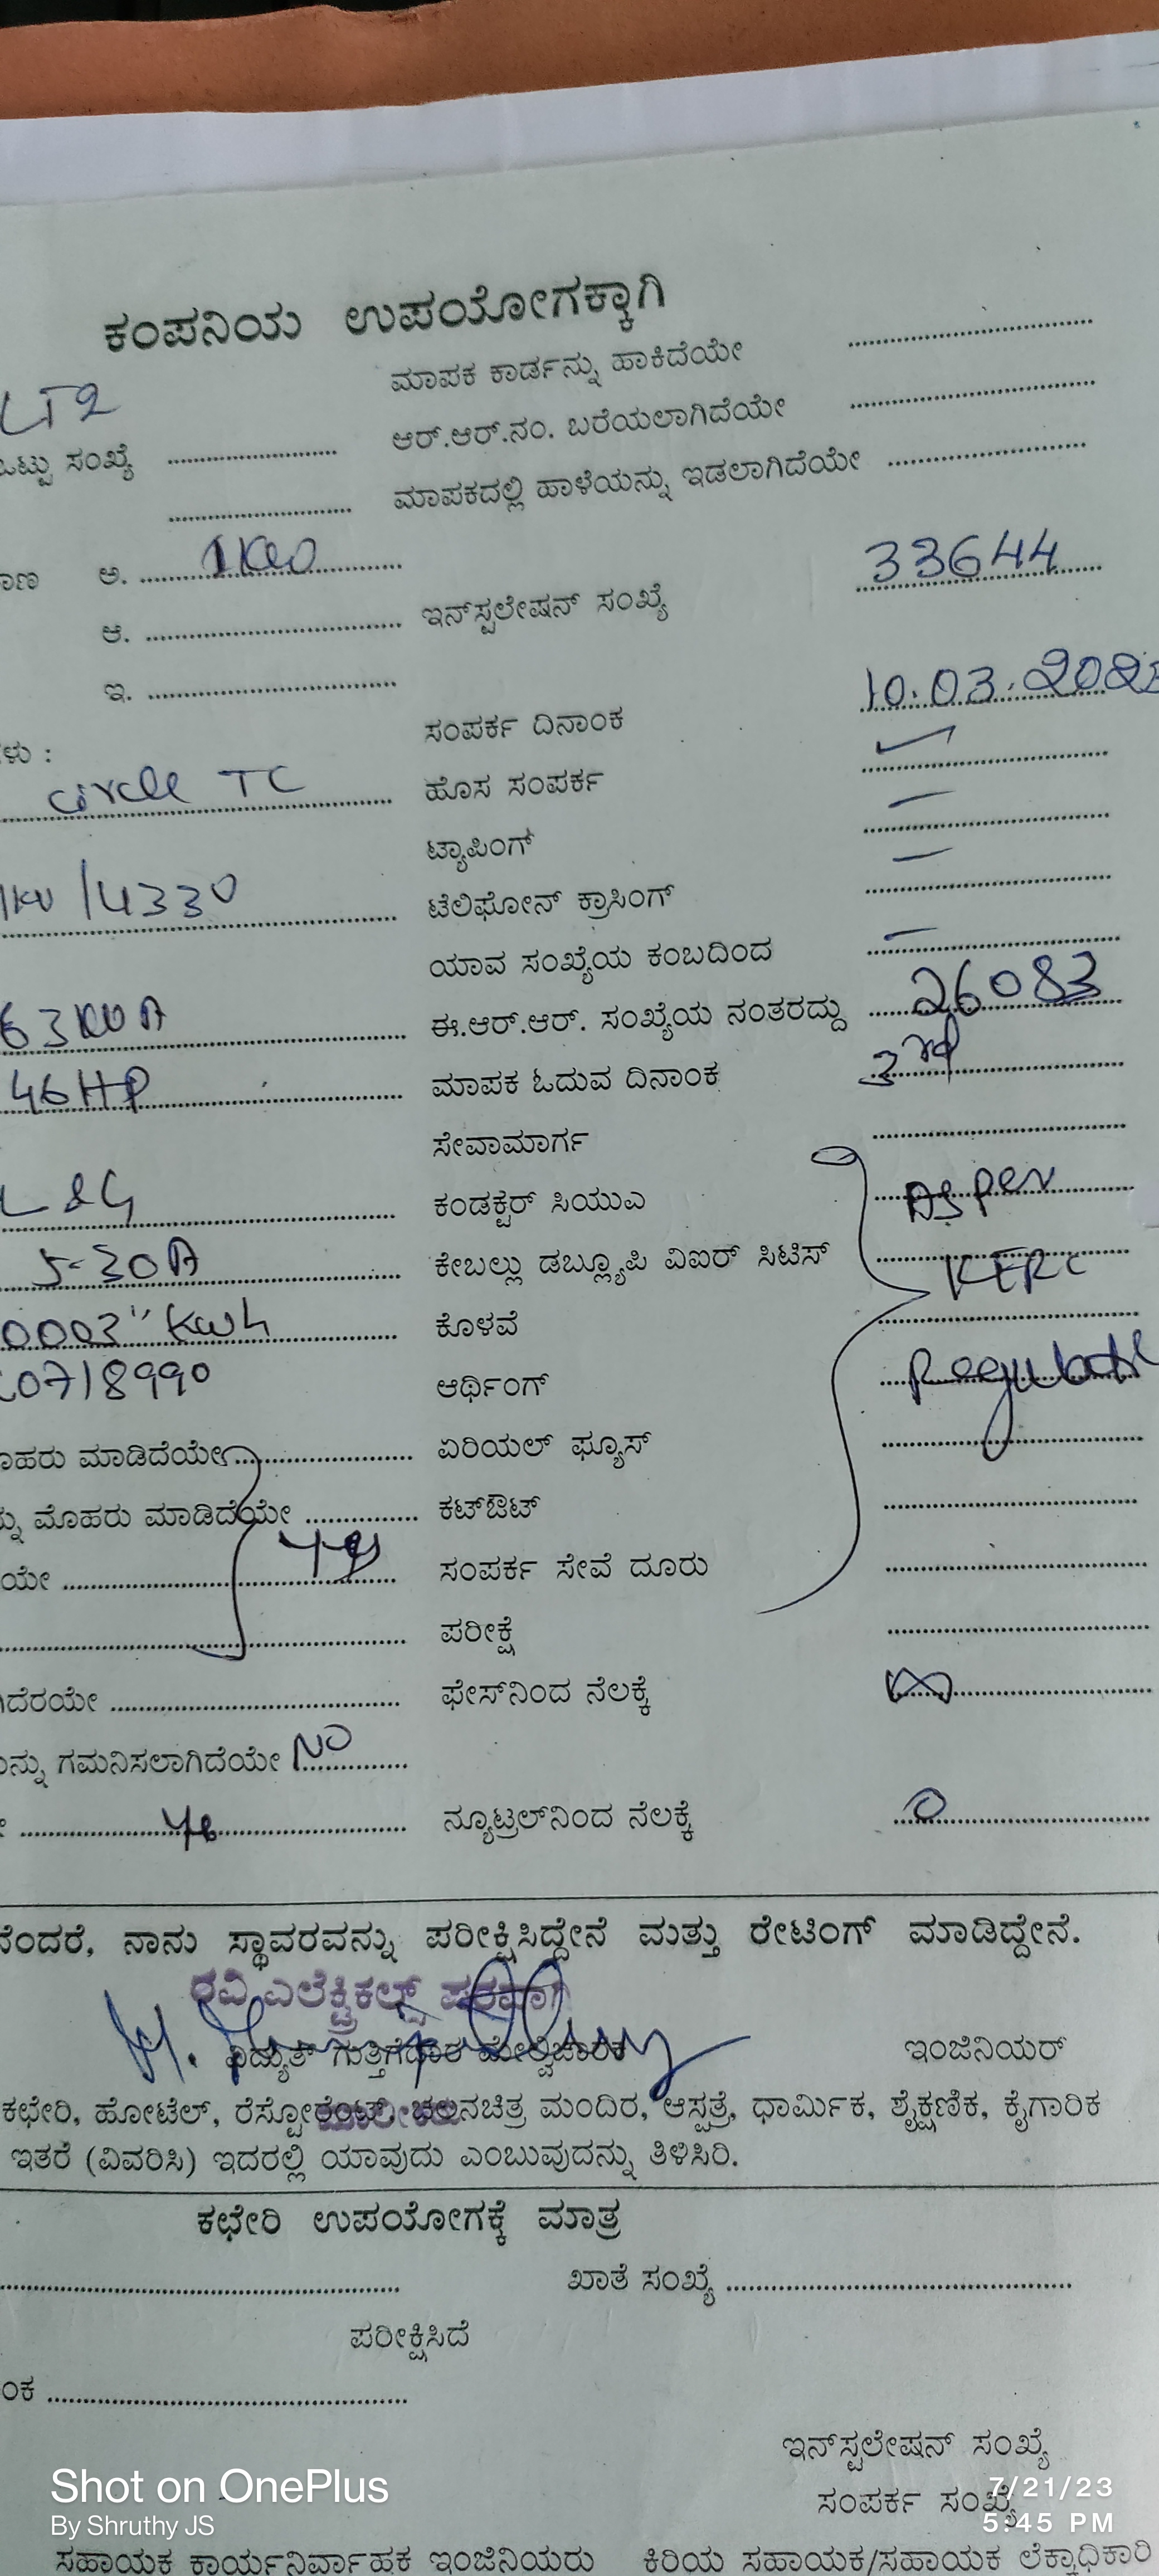 ಕಂಪನಿಯ ಉಪಯೋಗಕ್ಕಾಗಿ
ಮಾಪಕ ಕಾರ್ಡನ್ನು ಹಾಕಿದೆಯೇ
LT2
ಆರ್.ಆರ್.ನಂ. ಬರೆಯಲಾಗಿದೆಯೇ
ಒಟ್ಟು ಸಂಖ್ಯೆ
ಮಾಪಕದಲ್ಲಿ ಹಾಳೆಯನ್ನು ಇಡಲಾಗಿದೆಯೇ
ಅ. 1KW
ಆ. ಇನ್‌ಸ್ಟಲೇಷನ್ ಸಂಖ್ಯೆ 33644
ಇ.
ಸಂಪರ್ಕ ದಿನಾಂಕ 10.03.2023
circle TC ಹೊಸ ಸಂಪರ್ಕ
ಟ್ಯಾಪಿಂಗ್
/4330 ಟೆಲಿಫೋನ್ ಕ್ರಾಸಿಂಗ್
ಯಾವ ಸಂಖ್ಯೆಯ ಕಂಬದಿಂದ
63KVA ಈ.ಆರ್.ಆರ್. ಸಂಖ್ಯೆಯ ನಂತರದ್ದು 26083
46HP ಮಾಪಕ ಓದುವ ದಿನಾಂಕ 3rd
ಸೇವಾಮಾರ್ಗ
L&G ಕಂಡಕ್ಟರ್ ಸಿಯುಎ As per
5-30A ಕೇಬಲ್ಲು ಡಬ್ಲ್ಯೂಪಿ ವಿಐರ್ ಸಿಟಿಸ್ KERC
0003" Kwh ಕೊಳವೆ
0718990 ಆರ್ಥಿಂಗ್
ಮಾಡಿದೆಯೇ ಏರಿಯಲ್ ಫ್ಯೂಸ್
ಮೊಹರು ಮಾಡಿದೆಯೇ ಕಟ್‌ಔಟ್
ಸಂಪರ್ಕ ಸೇವೆ ದೂರು
ಪರೀಕ್ಷೆ
ಫೇಸ್‌ನಿಂದ ನೆಲಕ್ಕೆ ∞
ಗಮನಿಸಲಾಗಿದೆಯೇ NO
ನ್ಯೂಟ್ರಲ್‌ನಿಂದ ನೆಲಕ್ಕೆ 0
ನಾನು ಸ್ಥಾವರವನ್ನು ಪರೀಕ್ಷಿಸಿದ್ದೇನೆ ಮತ್ತು ರೇಟಿಂಗ್ ಮಾಡಿದ್ದೇನೆ.
ರವಿ ಎಲೆಕ್ಟ್ರಿಕಲ್ಸ್
ವಿದ್ಯುತ್ ಗುತ್ತಿಗೆದಾರ ಮೇಲ್ವಿಚಾರಕ ಇಂಜಿನಿಯರ್
ಕಛೇರಿ, ಹೋಟೆಲ್, ರೆಸ್ಟೋರೆಂಟ್, ಚಲನಚಿತ್ರ ಮಂದಿರ, ಆಸ್ಪತ್ರೆ, ಧಾರ್ಮಿಕ, ಶೈಕ್ಷಣಿಕ, ಕೈಗಾರಿಕ
ಇತರೆ (ವಿವರಿಸಿ) ಇದರಲ್ಲಿ ಯಾವುದು ಎಂಬುವುದನ್ನು ತಿಳಿಸಿರಿ.
ಕಛೇರಿ ಉಪಯೋಗಕ್ಕೆ ಮಾತ್ರ
ಖಾತೆ ಸಂಖ್ಯೆ
ಪರೀಕ್ಷಿಸಿದೆ
ಇನ್‌ಸ್ಟಲೇಷನ್ ಸಂಖ್ಯೆ
ಸಂಪರ್ಕ ಸಂಖ್ಯೆ
Shot on OnePlus
By Shruthy JS
7/21/23
5:45 PM
ಸಹಾಯಕ ಕಾರ್ಯನಿರ್ವಾಹಕ ಇಂಜಿನಿಯರು ಕಿರಿಯ ಸಹಾಯಕ/ಸಹಾಯಕ ಲೆಕ್ಕಾಧಿಕಾರಿ